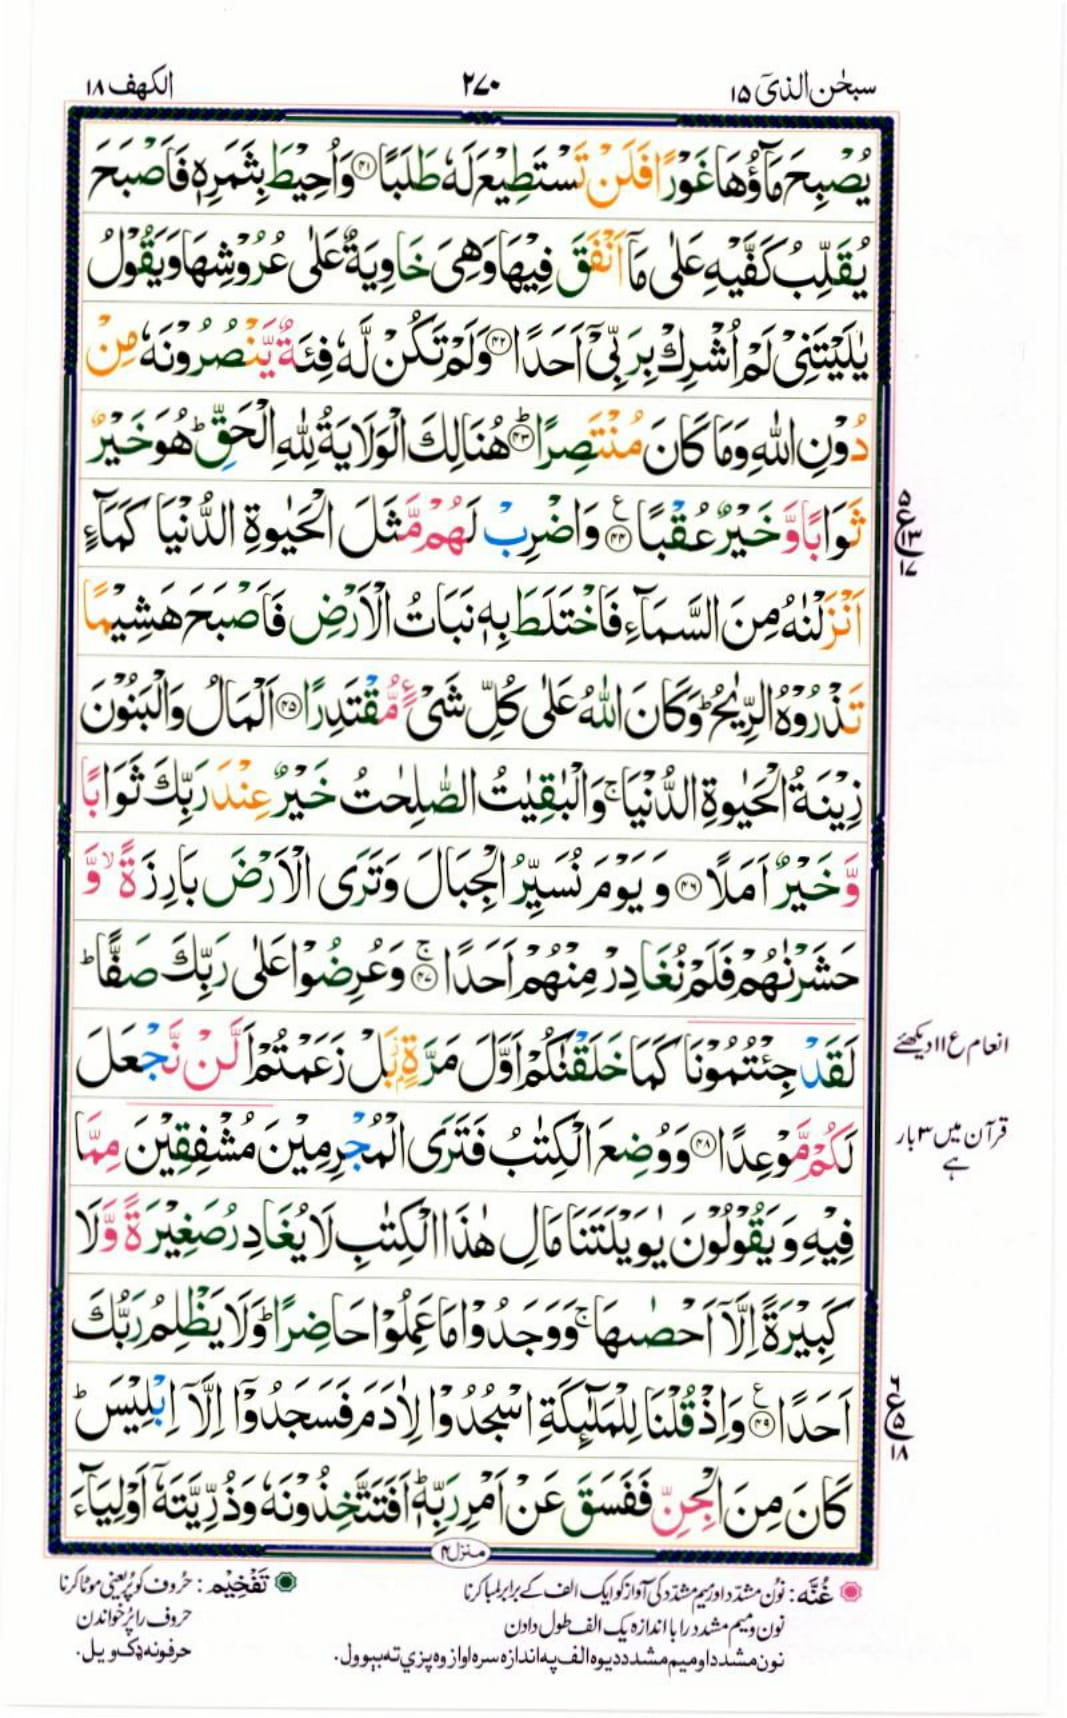 سبحٰن الذیٓ ۱۵
۲۷۰
الکهف ۱۸
یُصْبِحَ مَآؤُهَا غَوْرًا فَلَنْ تَسْتَطِیْعَ لَهٗ طَلَبًا ﴿۴۱﴾ وَاُحِیْطَ بِثَمَرِهٖ فَاَصْبَحَ
یُقَلِّبُ كَفَّیْهِ عَلٰی مَآ اَنْفَقَ فِیْهَا وَهِیَ خَاوِیَةٌ عَلٰی عُرُوْشِهَا وَیَقُوْلُ
یٰلَیْتَنِیْ لَمْ اُشْرِكْ بِرَبِّیْٓ اَحَدًا ﴿۴۲﴾ وَلَمْ تَكُنْ لَّهٗ فِئَةٌ یَّنْصُرُوْنَهٗ مِنْ
دُوْنِ اللّٰهِ وَمَا كَانَ مُنْتَصِرًا ﴿۴۳﴾ؕ هُنَالِكَ الْوَلَایَةُ لِلّٰهِ الْحَقِّ ؕ هُوَ خَیْرٌ
ثَوَابًا وَّخَیْرٌ عُقْبًا ﴿۴۴﴾ ع وَاضْرِبْ لَهُمْ مَّثَلَ الْحَیٰوةِ الدُّنْیَا كَمَآءٍ
۵
ع
۱۳
۱۷
اَنْزَلْنٰهُ مِنَ السَّمَآءِ فَاخْتَلَطَ بِهٖ نَبَاتُ الْاَرْضِ فَاَصْبَحَ هَشِیْمًا
تَذْرُوْهُ الرِّیٰحُ ؕ وَكَانَ اللّٰهُ عَلٰی كُلِّ شَیْءٍ مُّقْتَدِرًا ﴿۴۵﴾ اَلْمَالُ وَالْبَنُوْنَ
زِیْنَةُ الْحَیٰوةِ الدُّنْیَا ۚ وَالْبٰقِیٰتُ الصّٰلِحٰتُ خَیْرٌ عِنْدَ رَبِّكَ ثَوَابًا
وَّخَیْرٌ اَمَلًا ﴿۴۶﴾ وَیَوْمَ نُسَیِّرُ الْجِبَالَ وَتَرَی الْاَرْضَ بَارِزَةً ۙ وَّ
حَشَرْنٰهُمْ فَلَمْ نُغَادِرْ مِنْهُمْ اَحَدًا ﴿۴۷﴾ۚ وَعُرِضُوْا عَلٰی رَبِّكَ صَفًّا ؕ
لَقَدْ جِئْتُمُوْنَا كَمَا خَلَقْنٰكُمْ اَوَّلَ مَرَّةٍۭ بَلْ زَعَمْتُمْ اَلَّنْ نَّجْعَلَ
انعام ع ۱۱ دیکھئے
لَكُمْ مَّوْعِدًا ﴿۴۸﴾ وَوُضِعَ الْكِتٰبُ فَتَرَی الْمُجْرِمِیْنَ مُشْفِقِیْنَ مِمَّا
قرآن میں ۳ بار
ہے
فِیْهِ وَیَقُوْلُوْنَ یٰوَیْلَتَنَا مَالِ هٰذَا الْكِتٰبِ لَا یُغَادِرُ صَغِیْرَةً وَّلَا
كَبِیْرَةً اِلَّآ اَحْصٰىهَا ۚ وَوَجَدُوْا مَا عَمِلُوْا حَاضِرًا ؕ وَلَا یَظْلِمُ رَبُّكَ
اَحَدًا ﴿۴۹﴾ ع وَاِذْ قُلْنَا لِلْمَلٰٓئِكَةِ اسْجُدُوْا لِاٰدَمَ فَسَجَدُوْٓا اِلَّآ اِبْلِیْسَ ؕ
۶
ع
۵
۱۸
كَانَ مِنَ الْجِنِّ فَفَسَقَ عَنْ اَمْرِ رَبِّهٖ ؕ اَفَتَتَّخِذُوْنَهٗ وَذُرِّیَّتَهٗٓ اَوْلِیَآءَ
منزل ۴
غُنَّه : نُون مشدّد اور میم مشدّد کی آواز کو ایک الف کے برابر لمبا کرنا
نون و میم مشدد را با اندازه یک الف طول دادن
نون مشدد او میم مشدد دیوه الف په اندازه سره اواز وه پزي ته بېوول.
تَفْخِیْم : حُروف کو پُر یعنی موٹا کرنا
حروف را پُر خواندن
حرفونه ډک ویل.